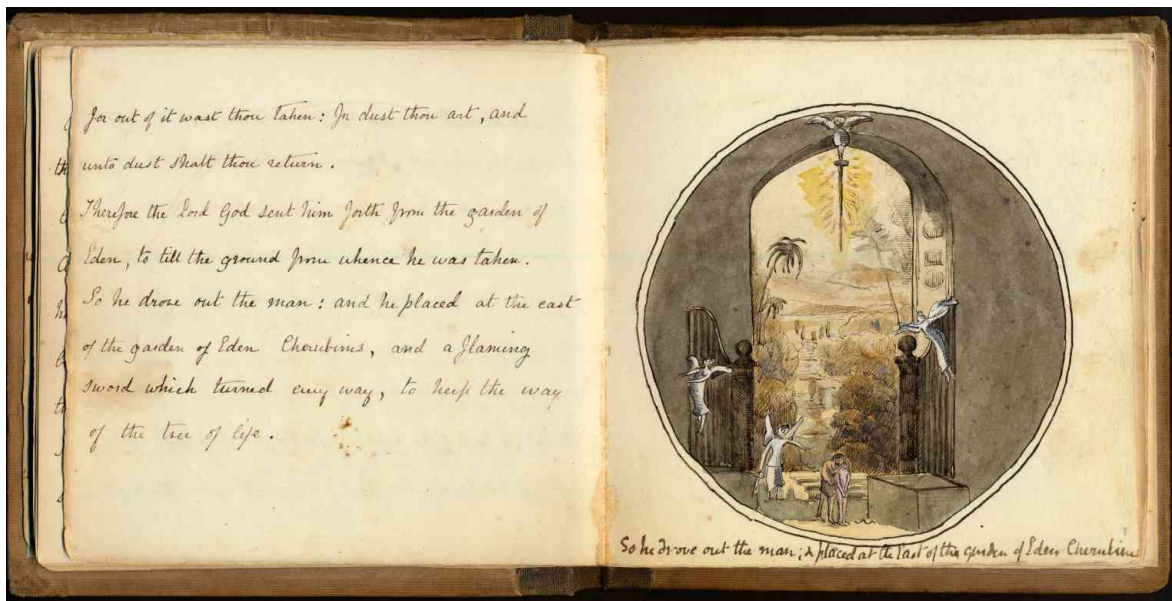 for out of it wast thou taken: for dust thou art, and
unto dust shalt thou return.
Therefore the Lord God sent him forth from the garden of
Eden, to till the ground from whence he was taken.
So he drove out the man: and he placed at the east
of the garden of Eden Cherubims, and a flaming
sword which turned every way, to keep the way
of the tree of life.
So he drove out the man; & placed at the East of the garden of Eden Cherubim